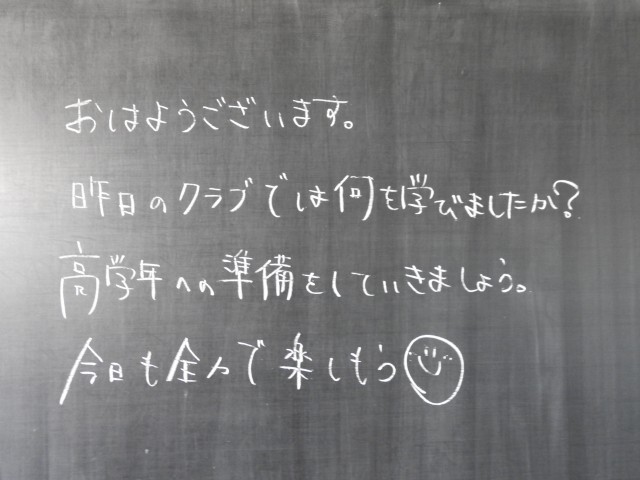 おはようございます。
昨日のクラブでは何を学びましたか?
高学年への準備をしていきましょう。
今日も全力で楽しもう